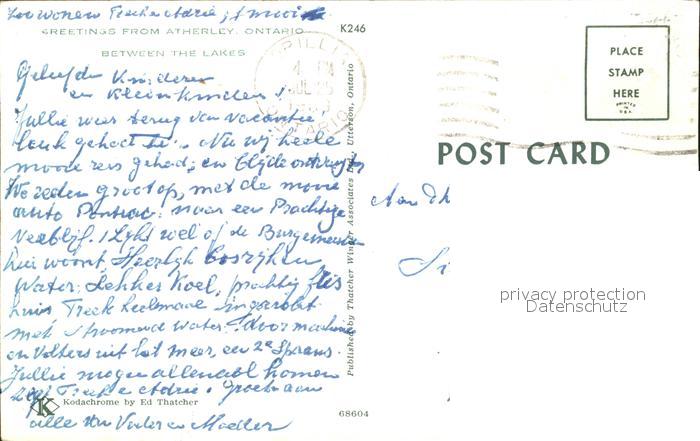 Zoo wonen Treek en Adrie, ; mooi
K246
GREETINGS FROM ATHERLEY, ONTARIO
BETWEEN THE LAKES
ORILLIA
ONTARIO
PLACE
STAMP
HERE
PRINTED IN U.S.A.
POST CARD
Geliefde Kinderen
en Kleinkinderen!
Jullie weer terug van vacantie
leuk gehad te. Nu wij heele
mooie reis gehad, en blijde ontvangst
We reden groots op, met de mooie
auto Pontiac: naar een Prachtige
verblijf. Lijkt wel of de Burgemeester
hier woont, Heerlijk bosrijk en
Water, Lekker Koel, prachtig
huis Treek heelemaal ingericht
met stroomend water
en Volters uit het meer, een 2e Spaans.
Jullie mogen allemaal komen
zegt Treek en Adrie. Groeten aan
alle van Vader en Moeder
Aan
Published by Thatcher Winter Associates Ltd., Utterson, Ontario
K Kodachrome by Ed Thatcher
68604
privacy protection
Datenschutz